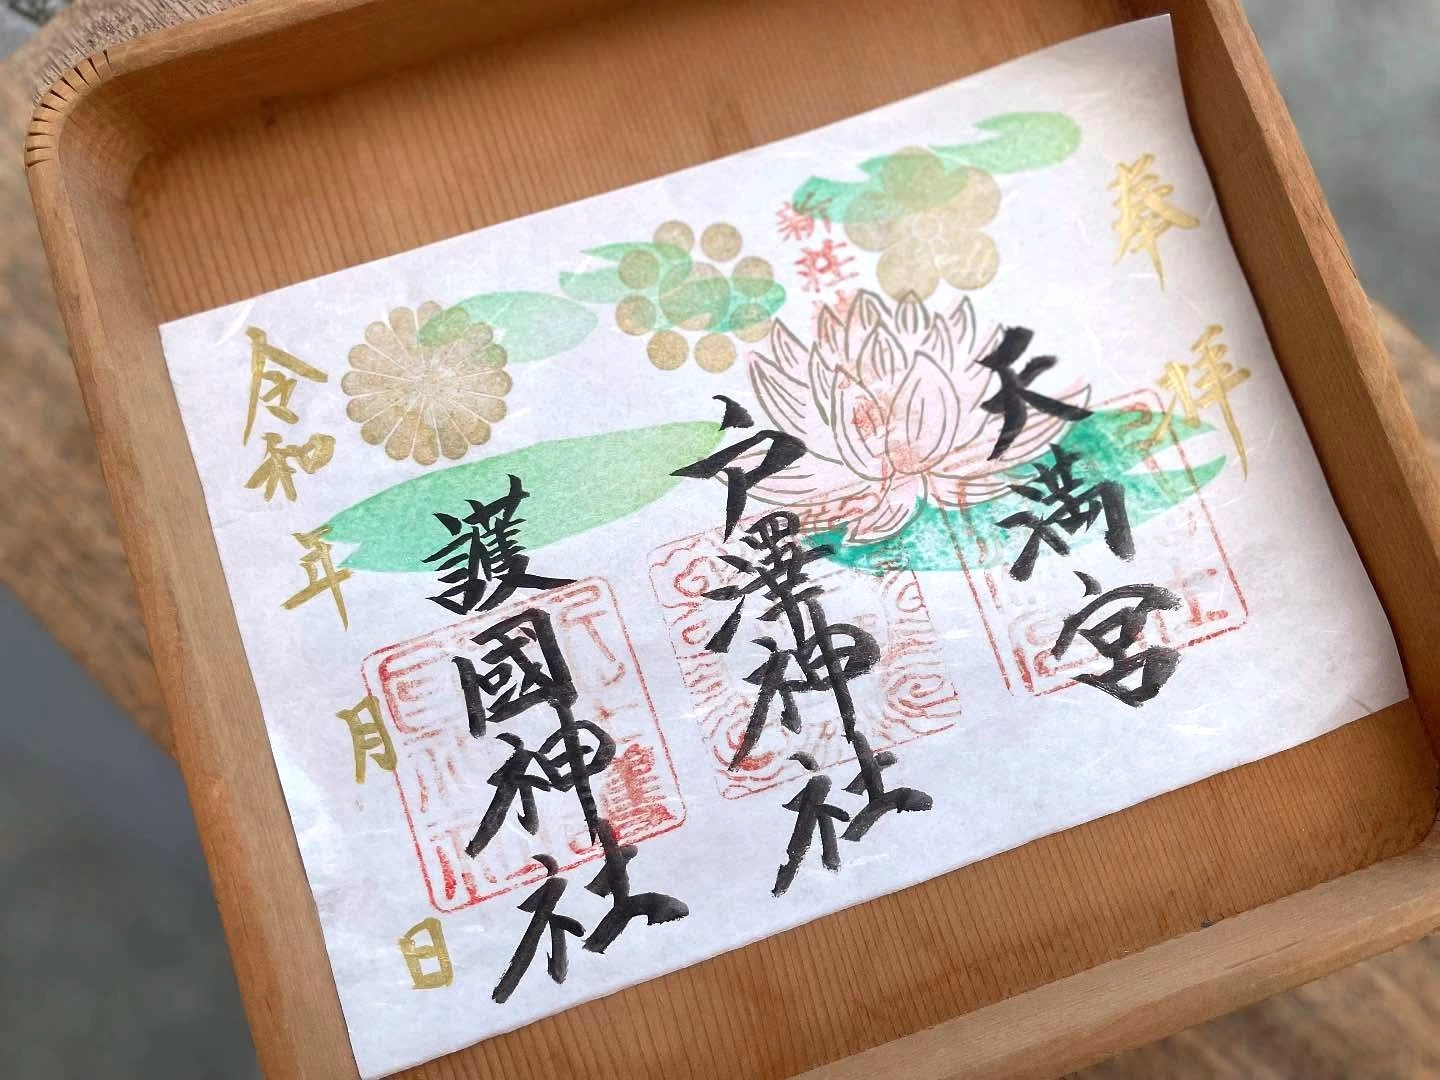 奉拝
天満宮
新荘
戸澤神社
護國神社
令和 年 月 日